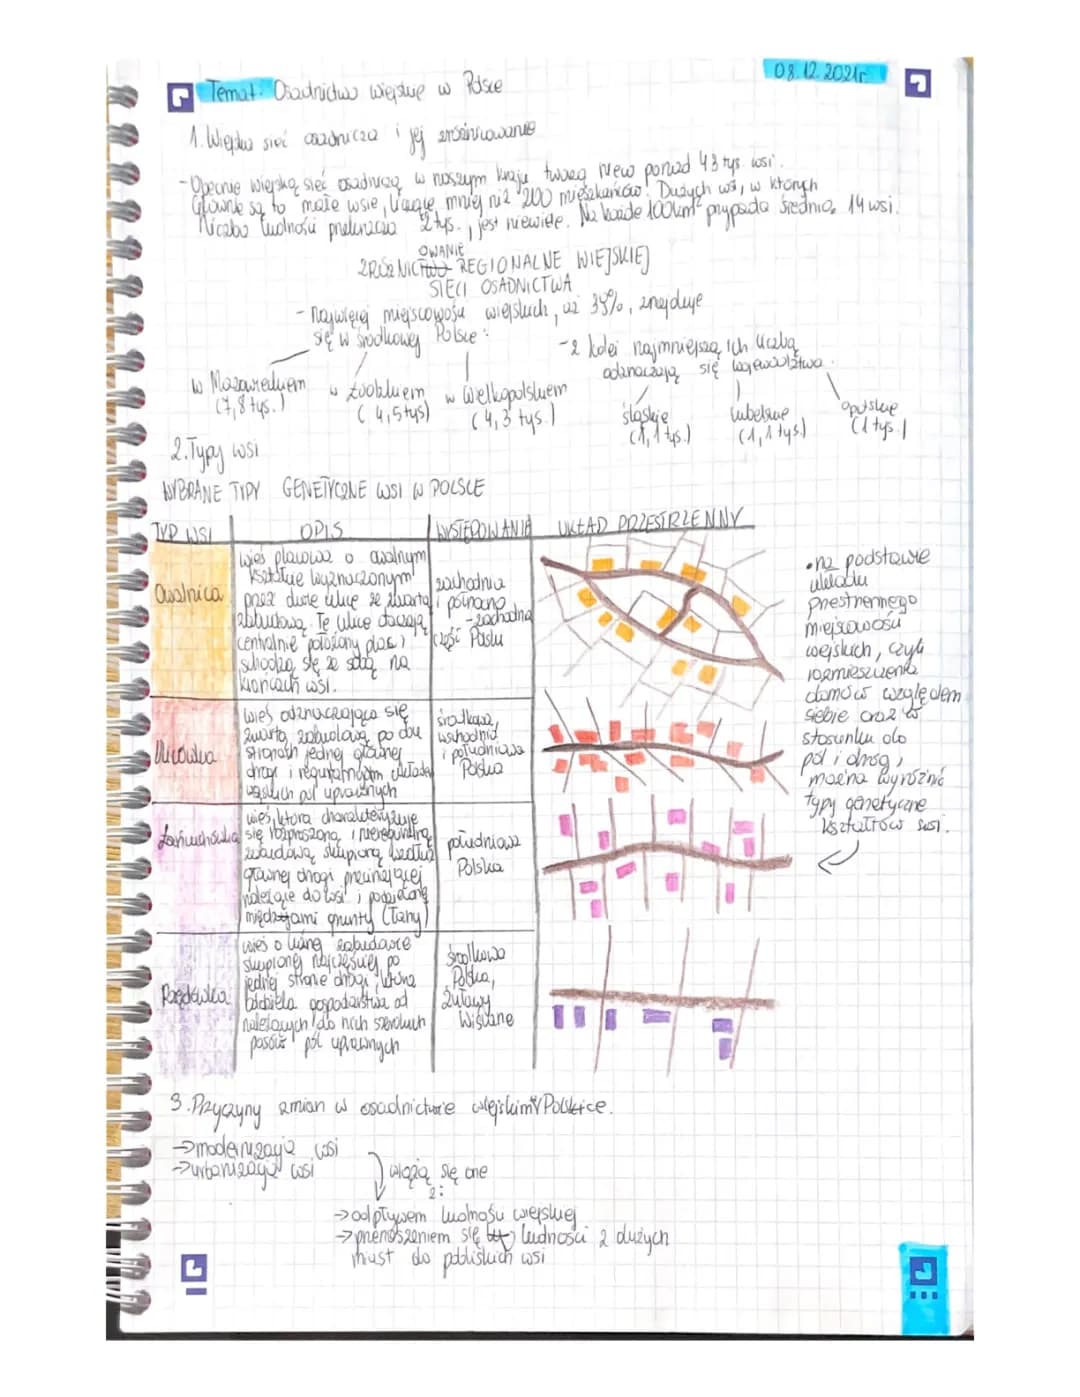 08.12.2021r.
Temat: Osadnictwo wiejskie w Polsce
1. Wiejska sieć osadnicza i jej zróżnicowanie
- Obecnie wiejską sieć osadniczą w naszym kraju tworzą ponad 43 tys. wsi.
Głównie są to małe wsie, liczące mniej niż 200 mieszkańców. Dużych wsi, w których
liczba ludności przekracza 2 tys., jest niewiele. Na każde 100km² przypada średnio 14 wsi.
OWANIE
ZRÓŻNIC REGIONALNE WIEJSKIEJ
SIECI OSADNICTWA
- najwięcej miejscowości wiejskich, aż 39%, znajduje
się w środkowej Polsce:
w Mazowieckiem
(7,8 tys.)
w Łódzkiem
(4,5 tys)
w Wielkopolskiem
(4,3 tys.)
- z kolei najmniejszą ich liczbą
odznaczają się województwa
śląskie
(1,1 tys.)
lubelskie
(1,1 tys.)
opolskie
(1 tys.)
2. Typy wsi
WYBRANE TYPY GENETYCZNE WSI W POLSCE
TYP WSI OPIS WYSTĘPOWANIE UKŁAD PRZESTRZENNY
Owalnica
wieś placowa o owalnym
kształcie wyznaczonym
przez dwie ulice ze zwartą
zabudową. Te ulice otaczają
centralnie położony plac i
schodzą się ze sobą na
końcach wsi.
zachodnia
i północno
-zachodnia
część Polski
Ulicówka
wieś odznaczająca się
zwartą zabudową po obu
stronach jednej głównej
drogi i regularnym układem
wąskich pól uprawnych
środkowa,
wschodnia
i południowa
Polska
Łańcuchówka
wieś, która charakteryzuje
się rozproszoną i nieregularną
zabudową skupioną wzdłuż
głównej drogi przecinającej
należące do wsi i podzielone
międzyami grunty (łany)
południowa
Polska
Rzędówka
wieś o luźnej zabudowie
skupionej najczęściej po
jednej stronie drogi, która
oddziela gospodarstwa od
należących do nich szerokich
pasów pól uprawnych
środkowa
Polska,
Żuławy
Wiślane
• na podstawie
układu
przestrzennego
miejscowości
wiejskich, czyli
rozmieszczenia
domów względem
siebie oraz w
stosunku do
pól i dróg,
można wyróżnić
typy genetyczne
kształtów wsi.
3. Przyczyny zmian w osadnictwie wiejskim w Polsce.
→ modernizacja wsi
→ urbanizacja wsi
wiążą się one
z:
→ odpływem ludności wiejskiej
→ przenoszeniem się ludności z dużych
miast do pobliskich wsi